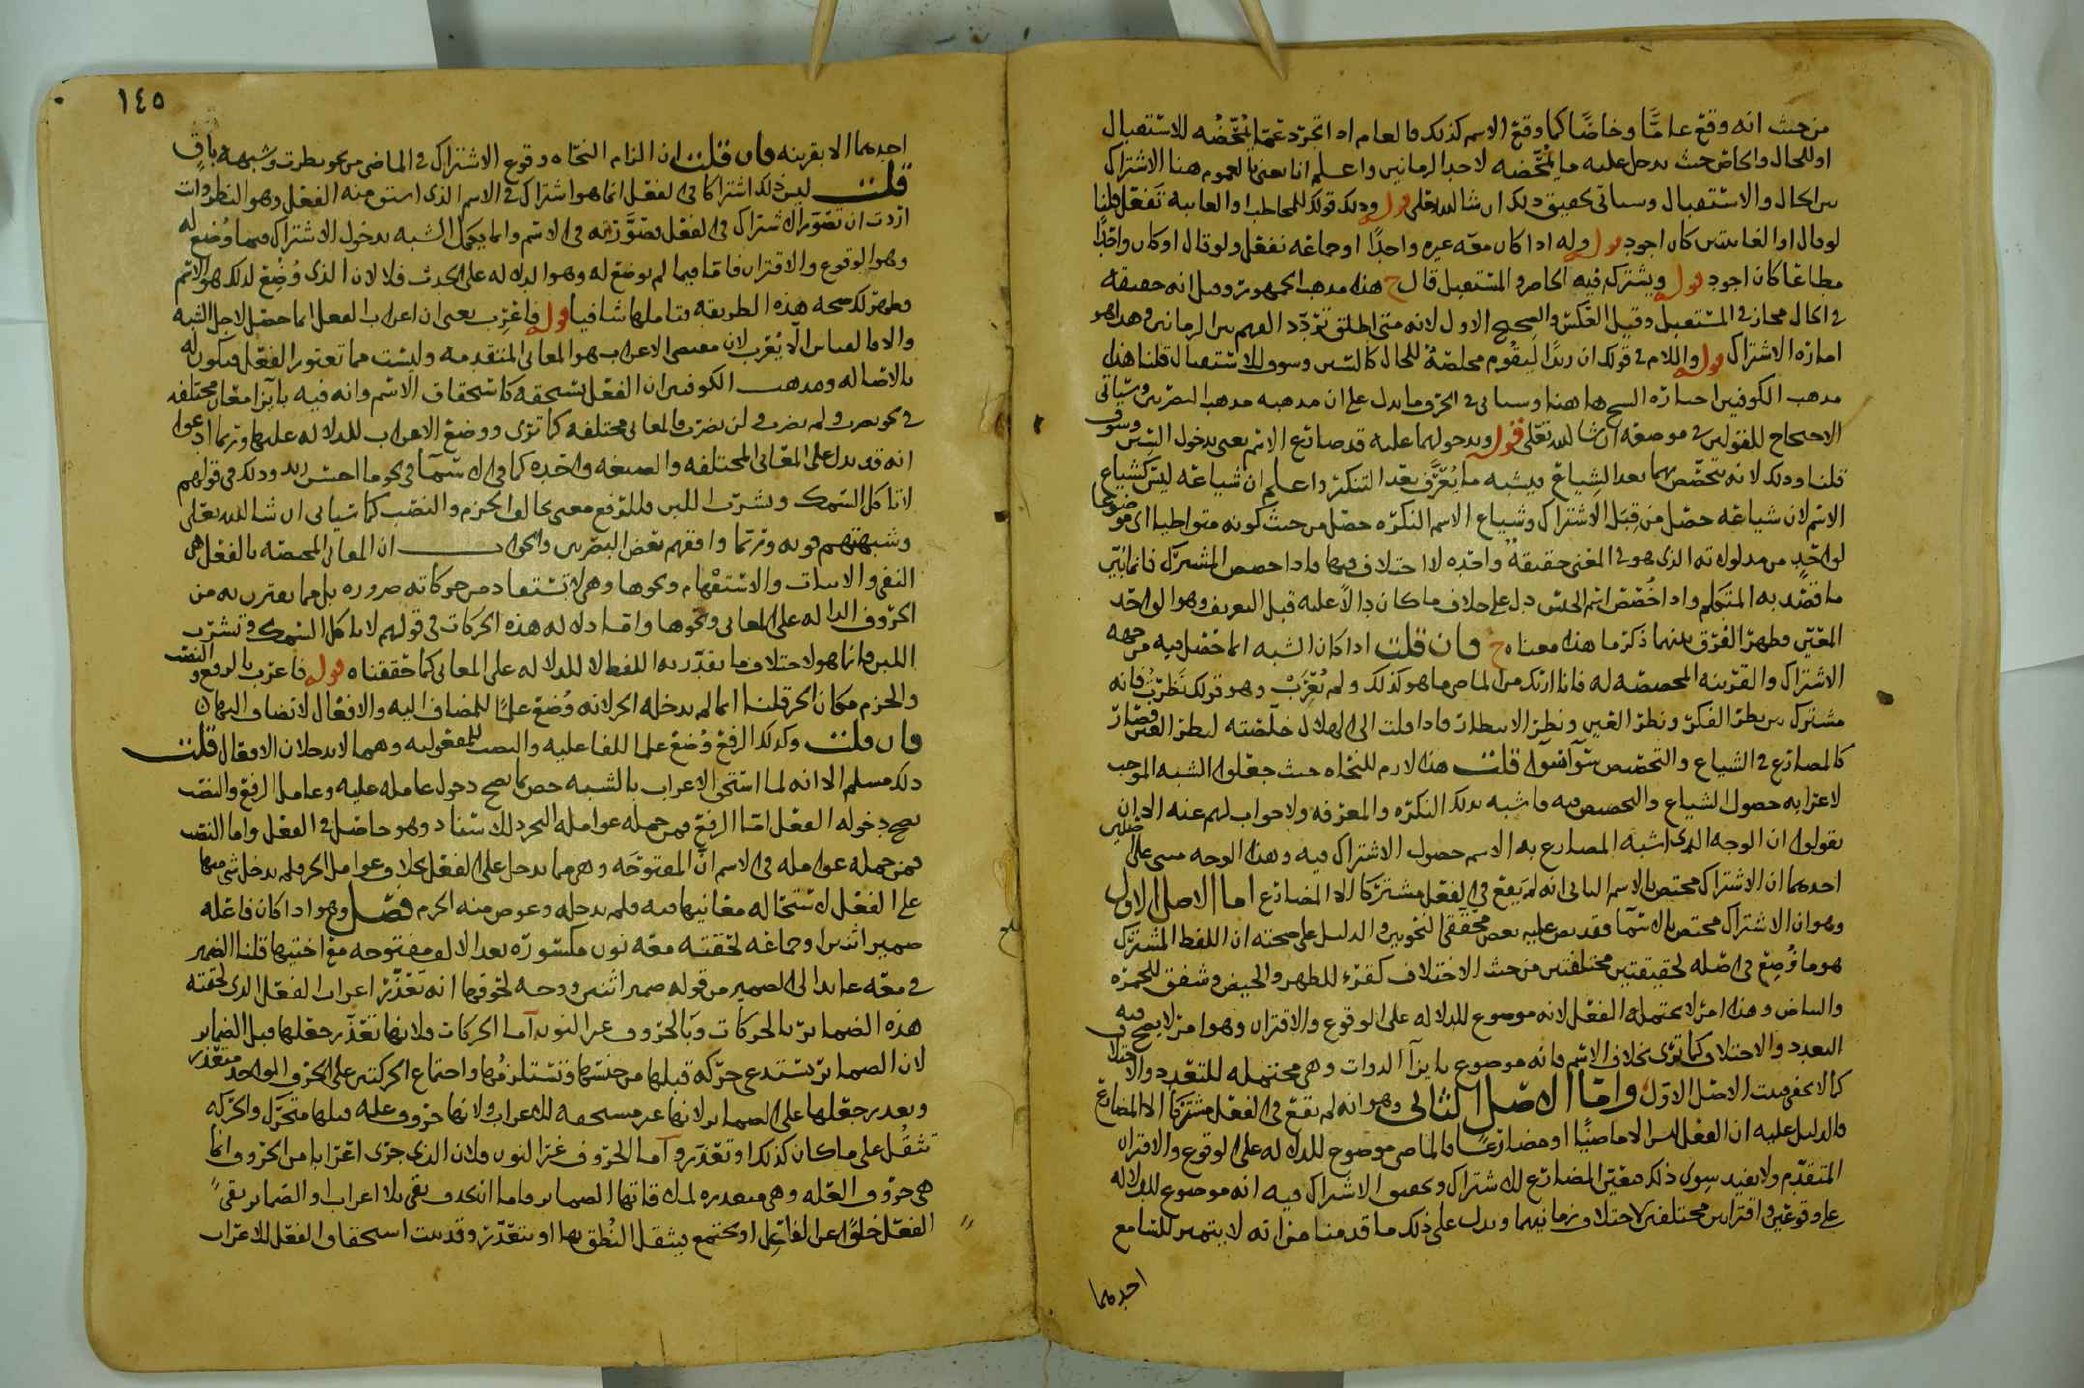 من حيث انه وقع عامًّا وخاضًا كما وقع الاسم كذلك فالعام اذا تجرد عما يُمَحّضُه للاستقبال
او للحال والخاص حيث يدخل عليه ما يُمَحّضه لاحد الزمانين واعلم انا نعني بالعموم هنا الاشتراك
بين الحال والاستقبال وسياتي تحقيق ذلك ان شا الله تعلى قوله وذلك قولك للمخاطب او الغايبة تَفعَل قلنا
لو قال او الغايبتين كان اجود قوله وله اذا كان معه غيره واحدًا او جماعة نفعل ولو قال او كان واحدًا
مطاعًا كان اجود قوله ويشترك فيه الحاضر والمستقبل قال ح هذا مذهب الجمهور وقيل انه حقيقة
في الحال مجاز في المستقبل وقيل العكس والصحيح الاول لانه متى اطلق تردّد الفهم بين الزمانين وهذا هو
امارة الاشتراك قوله واللام في قولك ان زيدًا ليقوم مخلصةٌ للحال كالسين وسوف للاستقبال قلنا هذا
مذهب الكوفيين اختاره الشيخ هاهنا وسياتي في الحرف ما يدل على ان مذهبه مذهب البصريين وسياتي
الاحتجاج للقولين في موضعه ان شا الله تعلى قوله وبدخولهما عليه قد ضارع الاسم يعني بدخول السين وسوف
قلنا وذلك لانه تخصّص بهما بعد الشِياع فيشبه ما يُعَرَّف بعد التنكير واعلم ان شياعه ليس كشياع
الاسم لان شياعه حصل من قِبَل الاشتراك وشياع الاسم النكرة حصل من حيث كونه متواطيا اي موضوعا
لواحدٍ من مدلولاته الذي هو في المعنى حقيقةٌ واحدة لا اختلاف فيها فاذا خصص المشترك فانما يتبيّن
ما قصد به المتكلم واذا خُصّص اسم الجنس دل على خلاف ما كان دالًا عليه قبل التعريف وهو الواحد
المعيّن فظهر الفرق بينهما ذكر ما هذا معناه ح فان قلت اذا كان الشبه انما حصل فيه من جهه
الاشتراك والقرينه المخصصه له فانا اريك من الماضي ما هو كذلك ولم يُعْرَبْ وهو قولك نَظَرْتُ فانه
مشترك بين نظر الفكر ونظر العين ونظر الانتظار فاذا قلت الى الهلال خلّصْته لنظر العين فصار
كالمضارع في الشياع والتخصيص سَوآ سَوآ قلت هذا لازم للنحاه حيث جعلوا الشبه الموجب
لاعرابه حصول الشياع والتخصيص فيه فاشبه بذلك النكرة والمعرفه ولا جواب لهم عنه الا ان
يقولوا ان الوجه الذي اشبه المضارع به الاسم حصول الاشتراك فيه وهذا الوجه مبني على اصلين
احدهما ان الاشتراك مختص بالاسم الثاني انه لم يَقع في الفعل مشتركا الا المضارع اما الاصل الاول
وهو ان الاشتراك مختص بالاسمآ فقد نص عليه بعض محققي النحويين والدليل على صحته ان اللفظ المشترك
هو ما وُضِعَ في اصله لحقيقتين مختلفتين من حيث الاختلاف كقرء للطهر والحيض وشفق للحمرة
والبياض وهذا امر لا يحتمله الفعل لانه موضوع للدلاله على الوقوع والاقتران وهو امر لا يصح فيه
التعدد والاختلاف كما ترى بخلاف الاسم فانه موضوع بازآ الذوات وهي محتمله للتعدد والاختلاف
كما لا يخفى فثبت الاصل الاوّل واما الاصل الثاني وهو انه لم يقع في الفعل مشتركا الا المضارع
فالدليل عليه ان الفعل ليس الا ماضيًا او مضارعًا فالماضي موضوع للدلاله على الوقوع والاقتران
المتقدّم ولا يفيد سِوى ذلك فتعين المضارع للاشتراك وتحقيق الاشتراك فيه انه موضوع للدلاله
على وقوعين واقترانين مختلفين لاختلاف زمانيهما ويدل على ذلك ما قدمنا من انه لا يتميز للسامع
احدهما
١٤٥
احدهما الا بقرينه فان قلت ان الزام النحاه وقوع الاشتراك في الماضي من نحو نظرت وشبهه باقٍ
قلت ليس ذلك اشتراكا في الفعل انما هو اشتراك في الاسم الذي اشتق منه الفعل وهو النظر وان
اردت ان تصوّر الاشتراك في الفعل تصَوَّرْته في الاسم وانما يكمل الشبه بدخول الاشتراك فيما وُضع له
وهو الوقوع والاقتران فاما فيما لم يوضع له وهو الدلاله على الحدث فلا لان الذي وُضِعَ لذلك هو الاسم
فظهر لك صحه هذه الطريقه فتاملها شافيا قوله فاعرِب يعني ان اعراب الفعل انما حصل لاجل الشبه
والا فالقياس الّا يُعْرَب لان مقتضي الاعراب هو المعاني المتقدمه وليست مما تعتور الفعل فيكون له
بالاصاله ومذهب الكوفيين ان الفعل يستحقه كاستحقاق الاسم وانه فيه بازآ معانٍ مختلفه
في نحو يضرب ولم يضرب ولن يضرب فالمعاني مختلفه كما ترى ووضع الاعراب للدلاله عليها وربما ادعوا
انه قد يدل على المعاني المختلفه والصيغه واحده كما في الاسمآ في نحو ما احسن زيد وذلك في قولهم
لا تاكل السمك وتشرب اللبن فللرفع معنى يخالف الجزم والنصب كما سياتي ان شا الله تعلى
وشبهتهم قويه وربما وافقهم بعض البصريين والجواب ان المعاني المختصه بالفعل هي
النفي والاثبات والاستفهام ونحوها وهي لا تستفاد من حركاته ضروره بل مما يقترن به من
الحروف الداله على المعاني ونحوها واما دلاله هذه الحركات في قولهم لا تاكل السمك وتشرب
اللبن فانما هو لاختلاف ما يقدّر به اللفظ لا للدلاله على المعاني كما حققناه قوله فاعرب بالرفع والنصب
والجزم مكان الجر قلنا انما لم يدخله الجر لانه وُضع علمًا للمضاف اليه والافعال لا تضاف اليها فان
فان قلت وكذلك الرفع وُضع علما للفاعليه والنصب للمفعوليه وهما لا يدخلان الافعال قلت
ذلك مسلم الا انه لما استحق الاعراب بالشبه خص بما يصح دخول عامله عليه وعامل الرفع والنصب
يصح دخوله الفعل امّا الرفع فمن جمله عوامله التجرد للاسناد وهو حاصل في الفعل واما النصب
فمن جمله عوامله في الاسم انّ المفتوحَه وهي مما يدخل على الفعل بخلاف عوامل الجر فلم يدخل شي منها
على الفعل لاستحاله معانيها فيه فلم يدخله وعوض منه الجزم فصل وهو اذا كان فاعله
ضمير اثنين او جماعه لحقته معه نون مكسوره بعد الالف مفتوحه مع اختيها قلنا الضمير
في معه عايد الى الضمير من قوله ضمير اثنين ووجه لحوقها انه تعذّر اعراب الفعل الذي لحقته
هذه الضماير بالحركات وبالحروف غير النون اما الحركات فلانها تعذّر جعلها قبل الضماير
لان الضماير تستدعي حركه قبلها من جنسها وتستلزمُها واجتماع الحركتين على الحرف الواحد متعذّر
وتعذر جعلها على الضماير لانها غير مستحقه للاعراب ولانها حروف عله قبلها متحرّك والحركه
تثقُل على ما كان كذلك او تتعذّر واما الحروف غير النون فلان الذي جرى اعرابا من الحروف انما
هي حروف العله وهي متعذره لملاقاتها الضماير فاما ان تحذف فيبقى بلا اعراب والضماير فيبقى
الفعل خلوًا عن الفاعل او تجتمع فيثقل النُطق بها او يتعذّر وقد ثبت استحقاق الفعل للاعراب